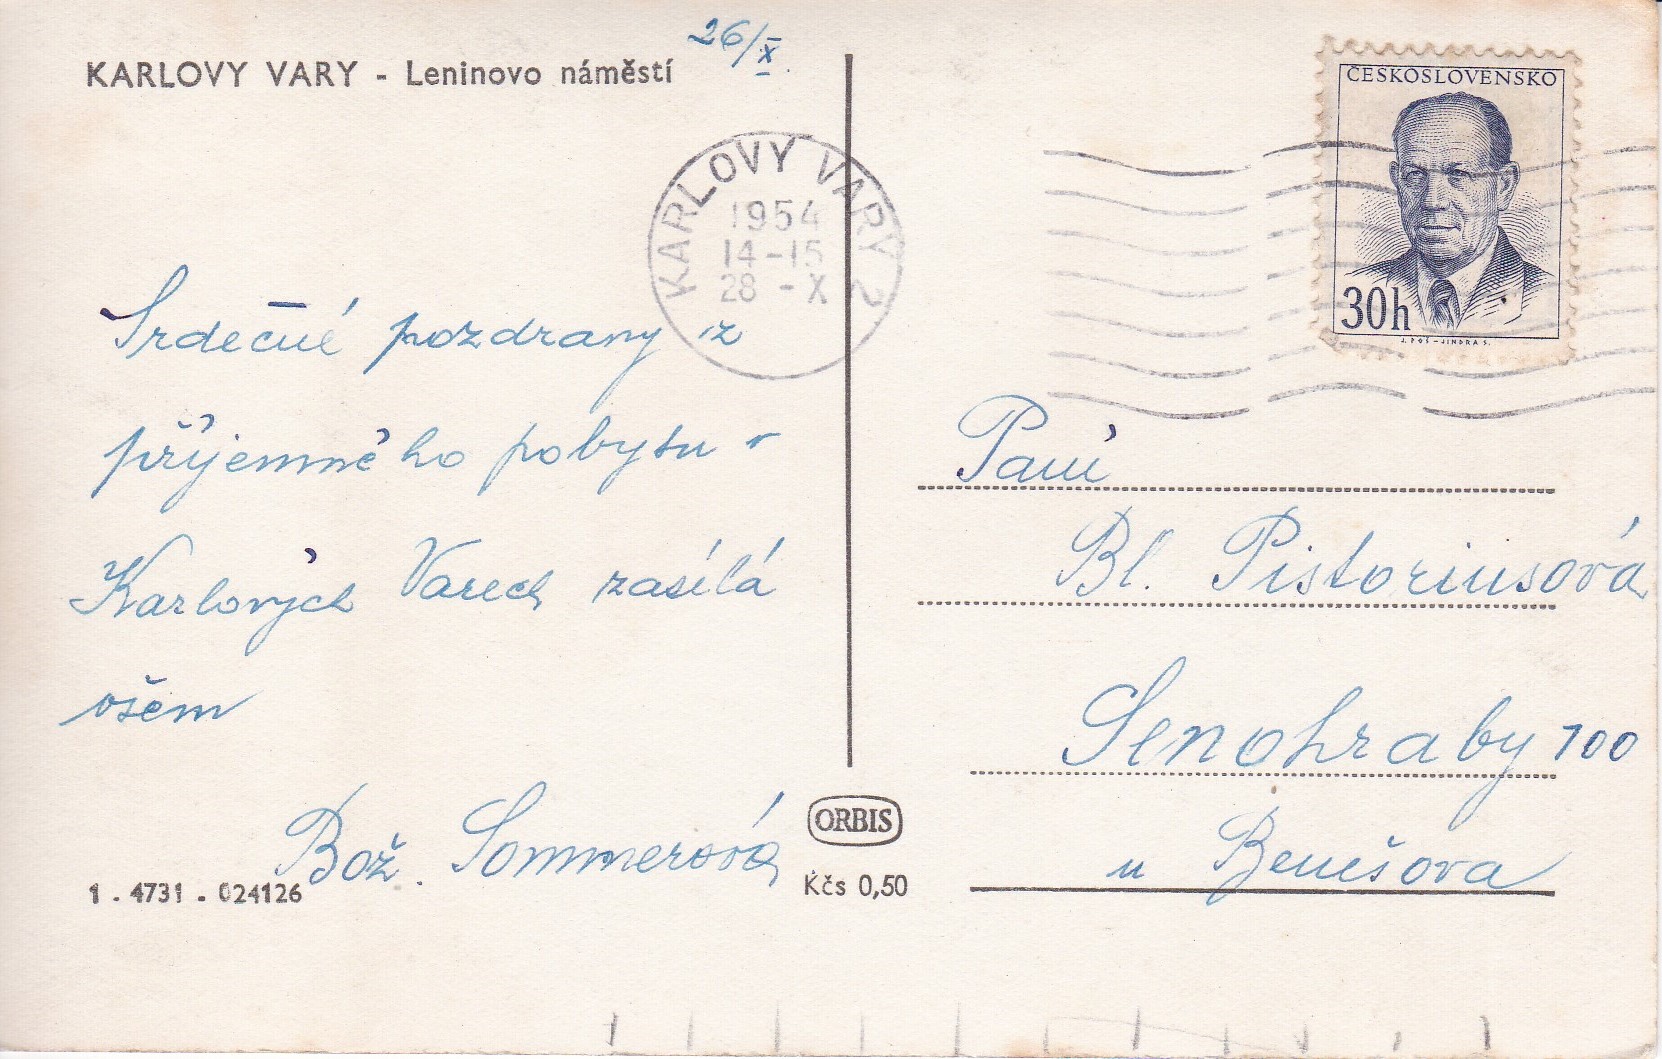 KARLOVY VARY - Leninovo náměstí
26/X.
ČESKOSLOVENSKO
30h
J. POŠ - JINDRA S.
KARLOVY VARY 2
1954
14-15
28 - X
Srdečné pozdravy z
příjemného pobytu v
Karlových Varech zasílá
všem
Bož. Sommerová
1 . 4731 . 024126
ORBIS
Kčs 0,50
Paní
Bl. Pistoriusová
Senohraby 100
u Benešova